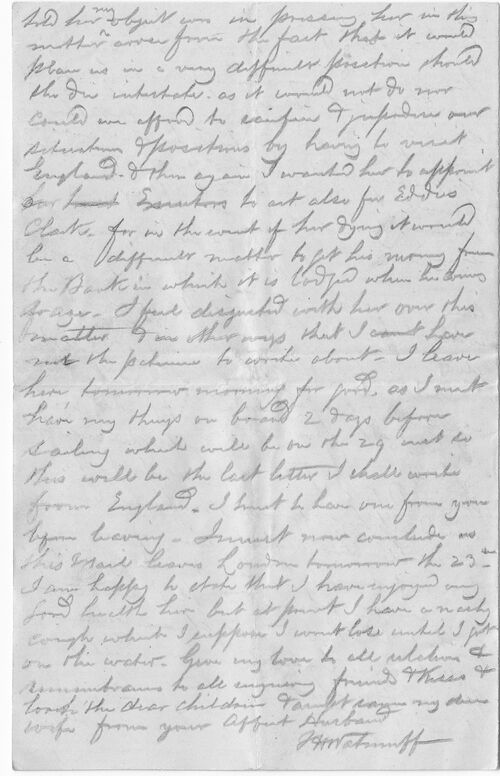 told her my object was in pressing her in this
matter arose from the fact that it would
place us in a very difficult position should
she die intestate. as it would not do nor
could we afford to sacrifice & jeopardise our
situations & positions by having to visit
England. & then again I wanted her to appoint
her Executors to act also for Eddis
Clark. for in the event of her dying it would
be a difficult matter to get his money from
the Bank in which it is lodged when he comes
to age. I feel disgusted with her over this
matter & in other ways that I have
not the patience to write about. I leave
here tomorrow morning for good. as I must
have my things on board 2 days before
sailing which will be on the 29 inst so
this will be the last letter I shall write
from England. I trust to have one from you
before leaving. I must now conclude as
this Mail leaves London tomorrow the 23rd
I am happy to state that I have enjoyed very
good health here but at present I have a nasty
cough which I suppose I wont lose until I get
on the water. Give my love to all relations &
remembrances to all enquiring friends & Kisses &
love to the dear children & accept same my dear
wife from your Affect Husband